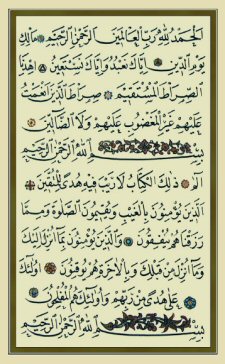 الحمد لله رب العالمين الرحمن الرحيم مالك
يوم الدين إياك نعبد وإياك نستعين اهدنا
الصراط المستقيم صراط الذين أنعمت
عليهم غير المغضوب عليهم ولا الضالين
بسم الله الرحمن الرحيم
الم ذلك الكتاب لا ريب فيه هدى للمتقين
الذين يؤمنون بالغيب ويقيمون الصلوة ومما
رزقناهم ينفقون والذين يؤمنون بما أنزل إليك
وما أنزل من قبلك وبالآخرة هم يوقنون أولئك
على هدى من ربهم وأولئك هم المفلحون
بسم الله الرحمن الرحيم